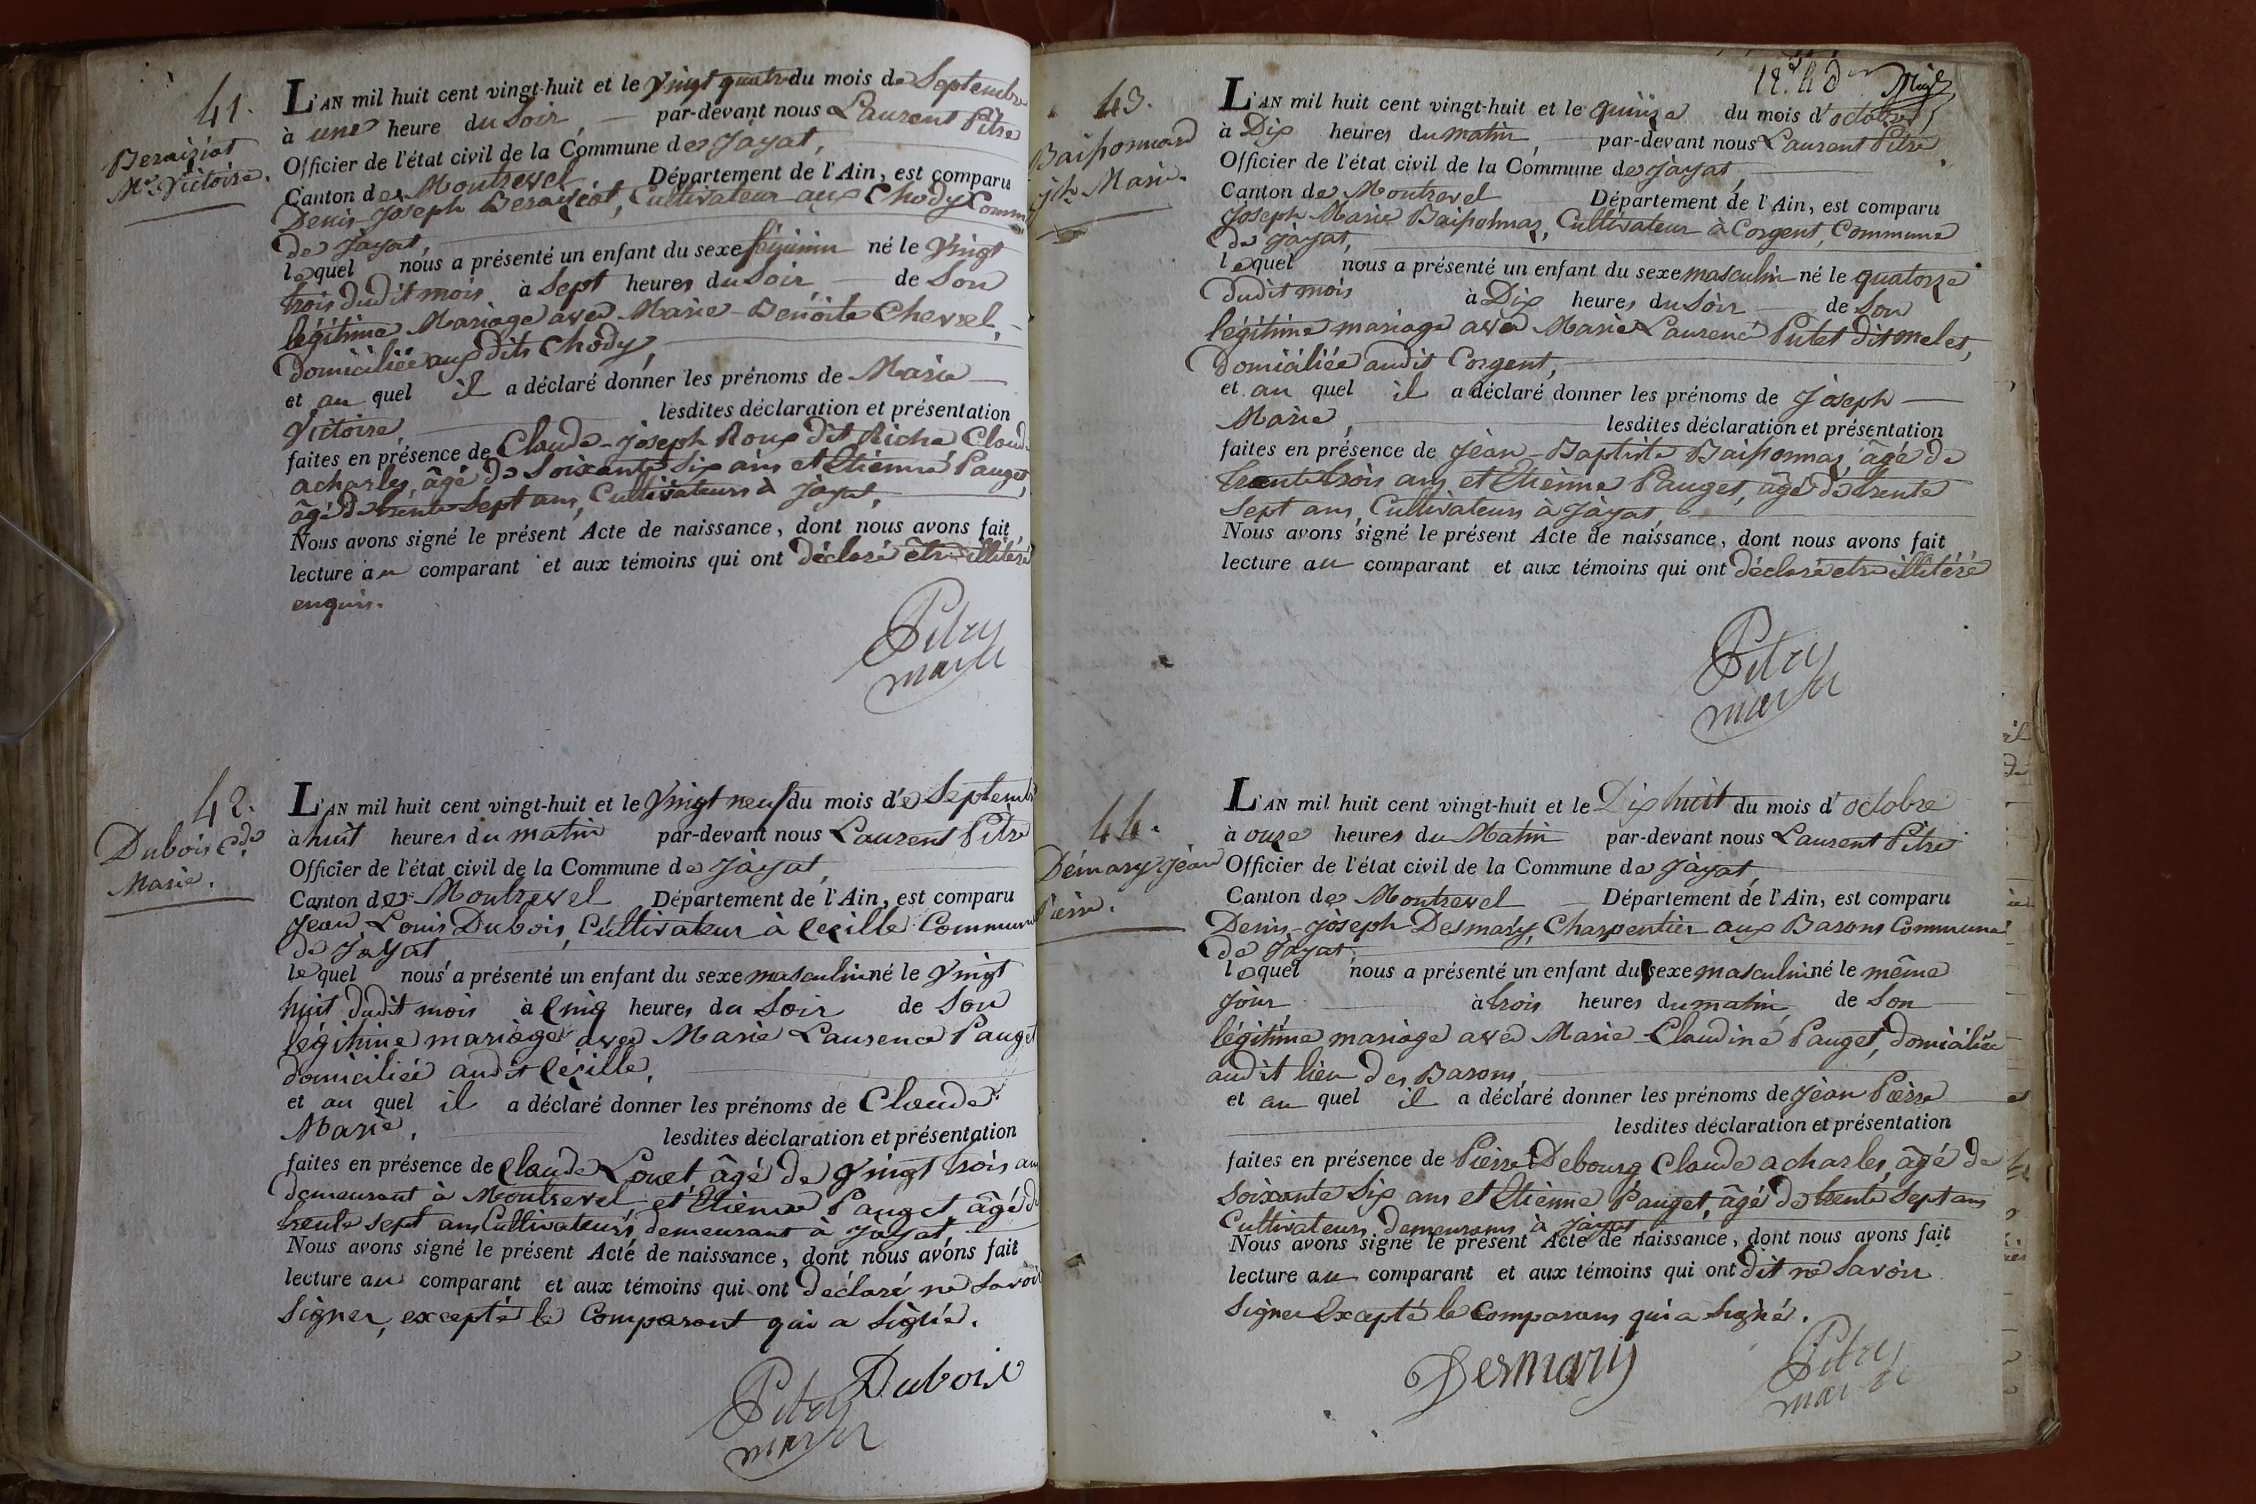 41.
Beraiziat
Mie Victoire.
L'AN mil huit cent vingt-huit et le vingt quatre du mois de Septembre
à une heure du Soir, par-devant nous Laurent Pitre
Officier de l'état civil de la Commune de Jayat,
Canton de Montrevel Département de l'Ain, est comparu
Denis-Joseph Beraiziat, Cultivateur aux Chody Comm
de Jayat,
lequel nous a présenté un enfant du sexe féminin né le vingt
trois dudit mois à Sept heures du Soir de Son
légitime Mariage avec Marie-Benoite Chevrel,
domiciliée aux dits Chody,
et au quel il a déclaré donner les prénoms de Marie
Victoire, lesdites déclaration et présentation
faites en présence de Claude-Joseph Roux dit Riche Claude
acharles, âgé de Soixante Six ans et Etienne Pauget,
âgé de trente Sept ans, Cultivateurs à Jayat,
Nous avons signé le présent Acte de naissance, dont nous avons fait
lecture au comparant et aux témoins qui ont déclaré être illitéré
enquis.
Pitre
maire
42.
Dubois Cde
Marie.
L'AN mil huit cent vingt-huit et le vingt neuf du mois de Septemb
à huit heures du matin par-devant nous Laurent Pitre
Officier de l'état civil de la Commune de Jayat,
Canton de Montrevel Département de l'Ain, est comparu
Jean Louis Dubois, Cultivateur à Cézille Commune
de Jayat
lequel nous a présenté un enfant du sexe masculin né le vingt
huit dudit mois à Cinq heures du Soir de Son
légitime mariage avec Marie Laurence Pauget
domiciliée audit Cézille,
et au quel il a déclaré donner les prénoms de Claude
Marie, lesdites déclaration et présentation
faites en présence de Claude Louet, âgé de vingt trois ans
demeurant à Montrevel et Etienne Pauget, âgé de
trente sept ans Cultivateurs, demeurant à Jayat,
Nous avons signé le présent Acte de naissance, dont nous avons fait
lecture au comparant et aux témoins qui ont déclaré ne Savoir
Signer, excepté le Comparant qui a Signé.
Dubois
Pitre
maire
43.
Baissonnard
jph Marie.
L'AN mil huit cent vingt-huit et le quinze du mois d'octobre
à Dix heures du matin, par-devant nous Laurent Pitre
Officier de l'état civil de la Commune de Jayat,
Canton de Montrevel Département de l'Ain, est comparu
Joseph Marie Baissonnas, Cultivateur à Corgent, Commune
de Jayat,
lequel nous a présenté un enfant du sexe masculin né le quatorze
dudit mois à Dix heures du Soir de Son
légitime mariage avec Marie Laurence Putet dit meles,
domiciliée audit Corgent,
et au quel il a déclaré donner les prénoms de Joseph
Marie, lesdites déclaration et présentation
faites en présence de Jean-Baptiste Baissonnas, âgé de
trente trois ans et Etienne Pauget, âgé de trente
Sept ans, Cultivateurs à Jayat,
Nous avons signé le présent Acte de naissance, dont nous avons fait
lecture au comparant et aux témoins qui ont déclaré être illitéré
Pitre
maire
44.
Démary Jean
Pierre.
L'AN mil huit cent vingt-huit et le Dix huit du mois d'octobre
à onze heures du Matin par-devant nous Laurent Pitre
Officier de l'état civil de la Commune de Jayat,
Canton de Montrevel Département de l'Ain, est comparu
Denis-Joseph Desmary, Charpentier aux Barons Commune
de Jayat,
lequel nous a présenté un enfant du sexe masculin né le même
Jour à trois heures du matin, de Son
légitime mariage avec Marie-Claudine Pauget, domiciliée
audit lieu des Barons,
et au quel il a déclaré donner les prénoms de Jean Pierre
lesdites déclaration et présentation
faites en présence de Pierre Debourg Claude acharles, âgé de
Soixante Six ans et Etienne Pauget, âgé de trente Sept ans
Cultivateurs demeurans à Jayat
Nous avons signé le présent Acte de naissance, dont nous avons fait
lecture au comparant et aux témoins qui ont dit ne Savoir
Signer Excepté le Comparans qui a Signé.
Desmary
Pitre
maire